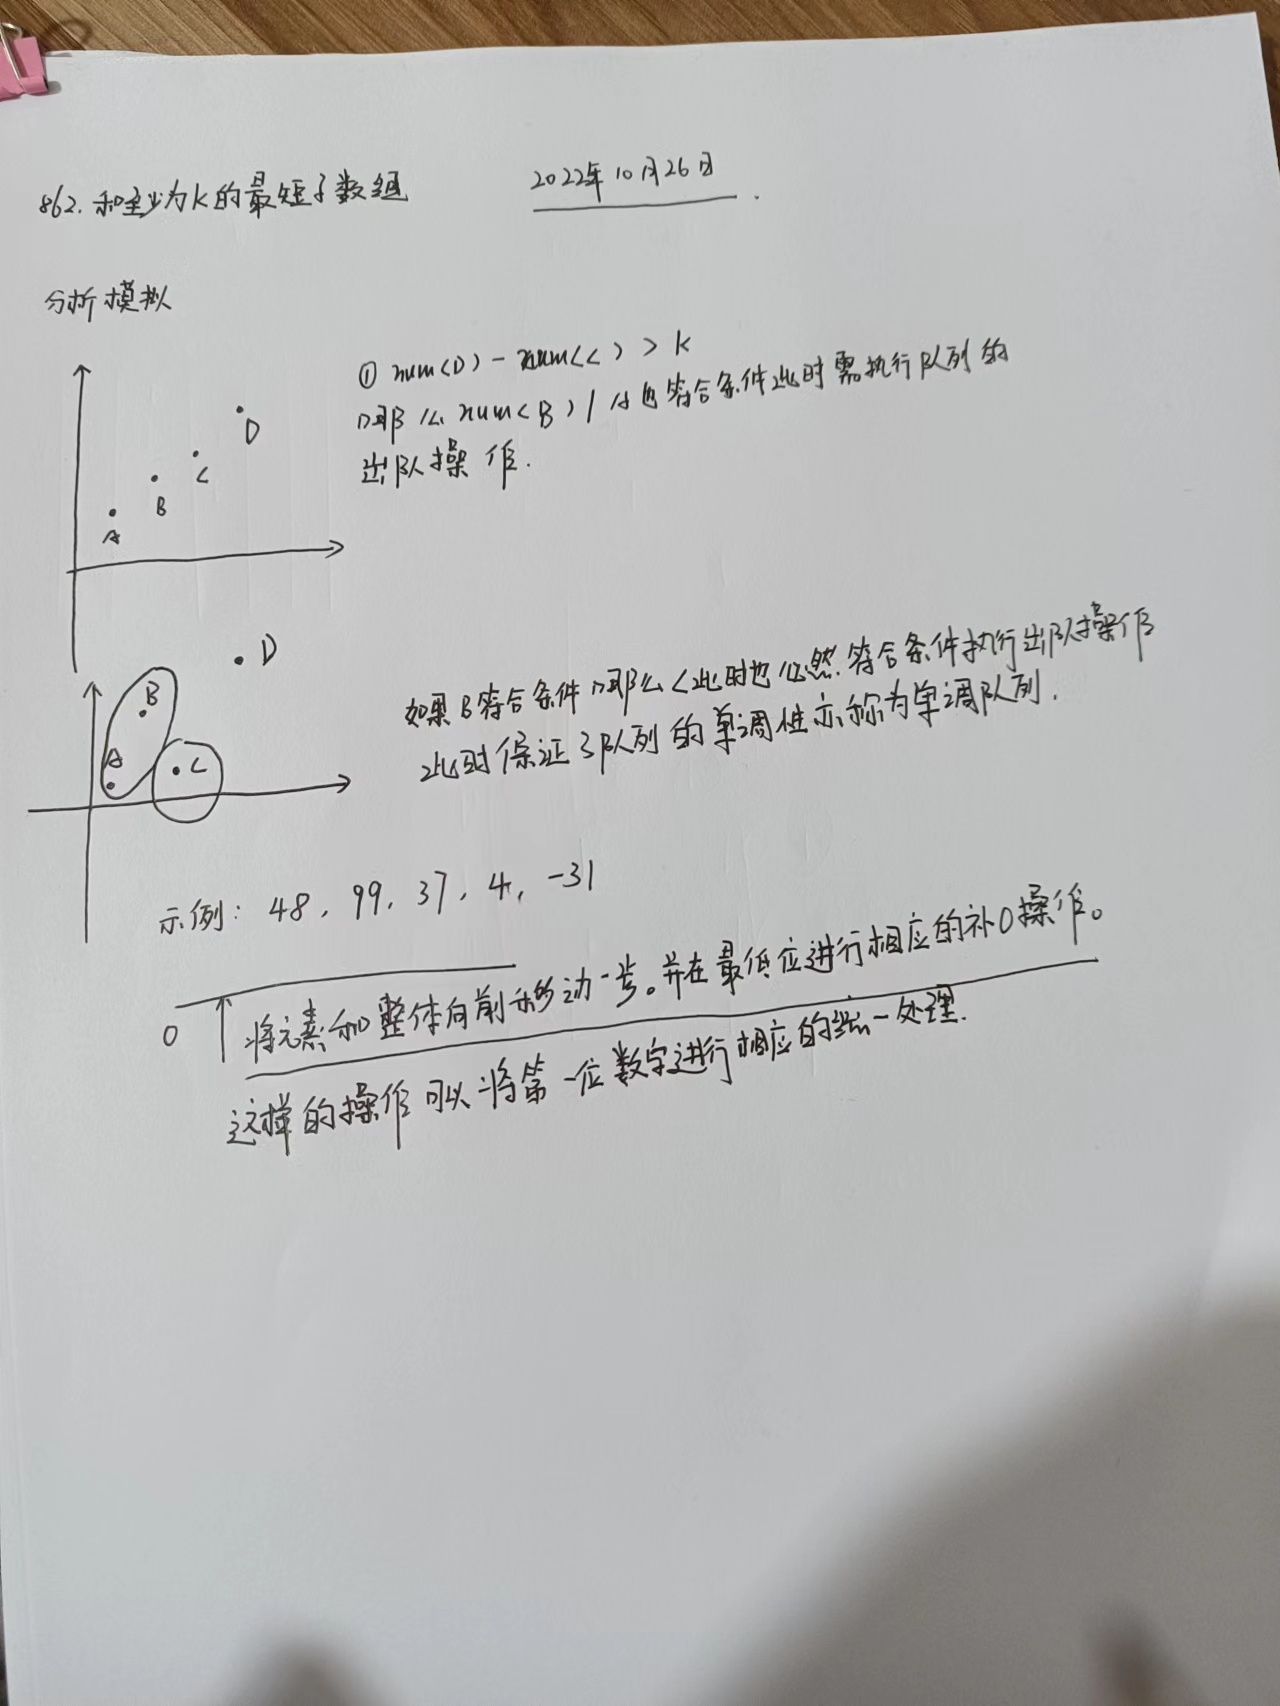 862. 和至少为K的最短子数组
2022年10月26日.
分析模拟
① num(D) - num(C) > K
那么 num(B) / A也符合条件此时需执行队列的
出队操作.
D
C
B
A
D
如果B符合条件那么C此时也必然符合条件执行出队操作
此时保证了队列的单调性亦称为单调队列.
B
A
C
示例: 48, 99, 37, 4, -31
0 将元素和整体向前移动一步。并在最低位进行相应的补0操作。
这样的操作可以将第一位数字进行相应的统一处理.